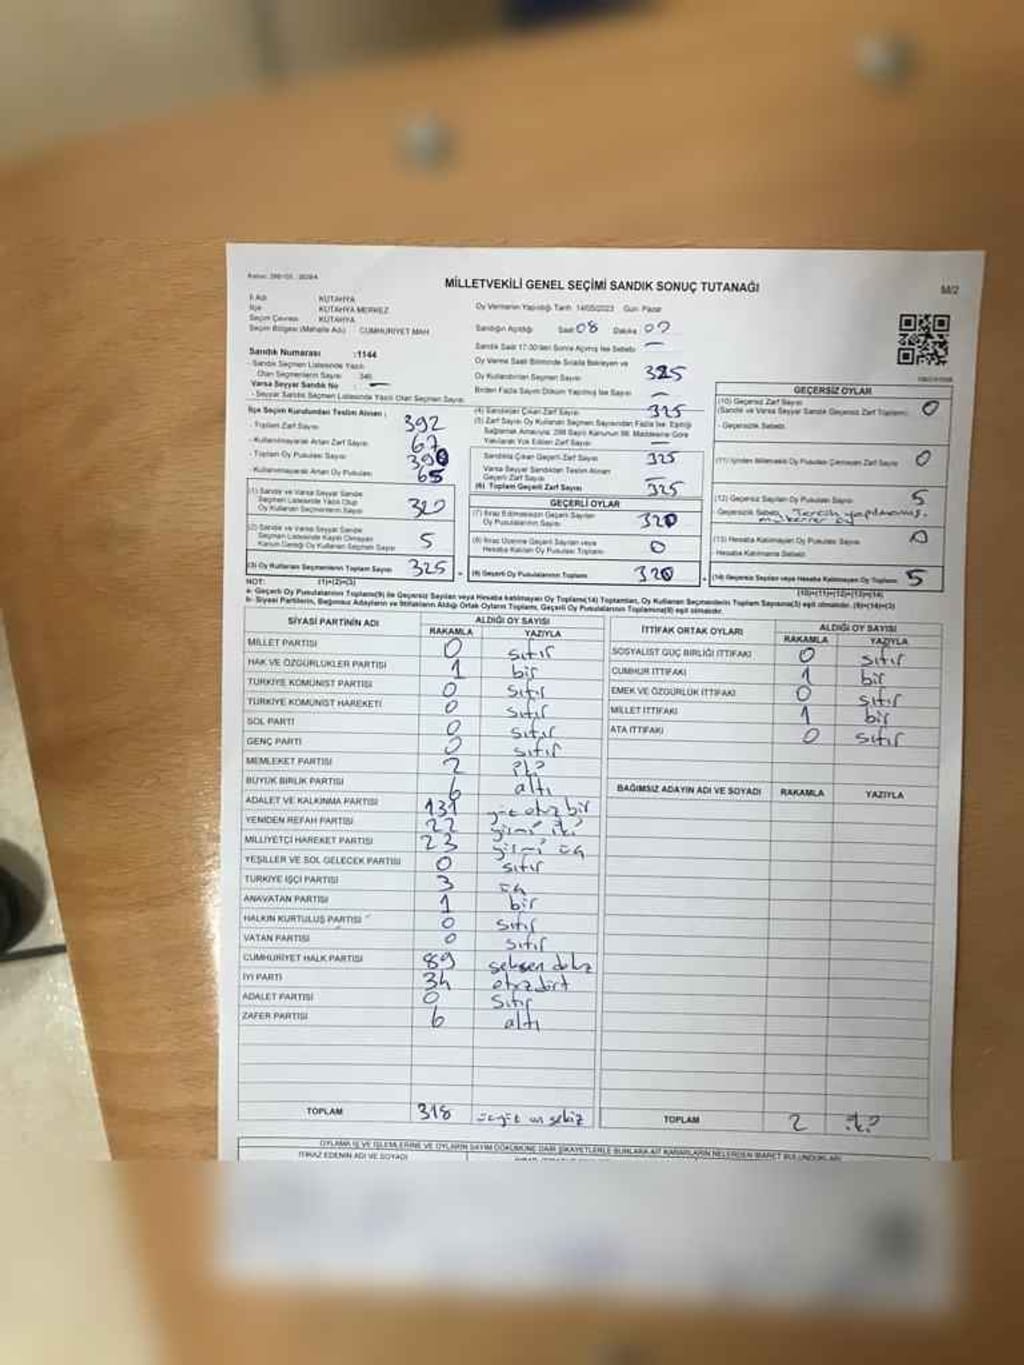 MİLLETVEKİLİ GENEL SEÇİMİ SANDIK SONUÇ TUTANAĞI
M/2
İl Adı KÜTAHYA
İlçe KÜTAHYA MERKEZ
Seçim Çevresi KÜTAHYA
Seçim Bölgesi (Mahalle Adı) CUMHURİYET MAH
Sandık Numarası :1144
- Sandık Seçmen Listesinde Yazılı
Olan Seçmenlerin Sayısı 346
Varsa Seyyar Sandık No : —
- Seyyar Sandık Seçmen Listesinde Yazılı Olan Seçmen Sayısı
Oy Vermenin Yapıldığı Tarih 14/05/2023 Gün Pazar
Sandığın Açıldığı Saat 08 Dakika
Sandık Saat 17:00'den Sonra Açılmış İse Sebebi —
Oy Verme Saati Bitiminde Sırada Bekleyen ve
Oy Kullandırılan Seçmen Sayısı 325
Birden Fazla Sayım Döküm Yapılmış İse Sayısı —
İlçe Seçim Kurulundan Teslim Alınan :
- Toplam Zarf Sayısı 392
- Kullanılmayarak Artan Zarf Sayısı 67
- Toplam Oy Pusulası Sayısı 390
- Kullanılmayarak Artan Oy Pusulası 65
(1) Sandık ve Varsa Seyyar Sandık
Seçmen Listesinde Yazılı Olup
Oy Kullanan Seçmenlerin Sayısı 320
(2) Sandık ve Varsa Seyyar Sandık
Seçmen Listesinde Kayıtlı Olmayan
Kanun Gereği Oy Kullanan Seçmen Sayısı 5
(3) Oy Kullanan Seçmenlerin Toplam Sayısı 325
(4) Sandıktan Çıkan Zarf Sayısı 325
(5) Zarf Sayısı Oy Kullanan Seçmen Sayısından Fazla İse, Eşitliği
Sağlamak Amacıyla, 298 Sayılı Kanunun 98. Maddesine Göre
Yakılarak Yok Edilen Zarf Sayısı —
Sandıkta Çıkan Geçerli Zarf Sayısı 325
Varsa Seyyar Sandıktan Teslim Alınan
Geçerli Zarf Sayısı —
(6) Toplam Geçerli Zarf Sayısı 325
GEÇERLİ OYLAR
(7) İtiraz Edilmeksizin Geçerli Sayılan
Oy Pusulalarının Sayısı 320
(8) İtiraz Üzerine Geçerli Sayılan veya
Hesaba Katılan Oy Pusulası Toplamı 0
(9) Geçerli Oy Pusulalarının Toplamı 320
GEÇERSİZ OYLAR
(10) Geçersiz Zarf Sayısı 0
(Sandık ve Varsa Seyyar Sandık Geçersiz Zarf Toplamı)
- Geçersizlik Sebebi
(11) İçinden Birleşik Oy Pusulası Çıkmayan Zarf Sayısı 0
(12) Geçersiz Sayılan Oy Pusulası Sayısı 5
- Geçersizlik Sebebi Tercih yapılmamış.
mükerrer oy
(13) Hesaba Katılmayan Oy Pusulası Sayısı 0
- Hesaba Katılmama Sebebi
(14) Geçersiz Sayılan veya Hesaba Katılmayan Oy Toplamı 5
NOT: (1)+(2)=(3) (10)+(11)+(12)+(13)=(14)
a- Geçerli Oy Pusulalarının Toplamı(9) ile Geçersiz Sayılan veya Hesaba Katılmayan Oy Toplamı(14) Toplamları, Oy Kullanan Seçmenlerin Toplam Sayısına(3) eşit olmalıdır. (9)+(14)=(3)
b- Siyasi Partilerin, Bağımsız Adayların ve İttifakların Aldığı Ortak Oyların Toplamı, Geçerli Oy Pusulalarının Toplamına(9) eşit olmalıdır.
SİYASİ PARTİNİN ADI ALDIĞI OY SAYISI
RAKAMLA YAZIYLA
MİLLET PARTİSİ 0 sıfır
HAK VE ÖZGÜRLÜKLER PARTİSİ 1 bir
TÜRKİYE KOMÜNİST PARTİSİ 0 sıfır
TÜRKİYE KOMÜNİST HAREKETİ 0 sıfır
SOL PARTİ 0 sıfır
GENÇ PARTİ 0 sıfır
MEMLEKET PARTİSİ 2 iki
BÜYÜK BİRLİK PARTİSİ 6 altı
ADALET VE KALKINMA PARTİSİ 131 yüz otuz bir
YENİDEN REFAH PARTİSİ 22 yirmi iki
MİLLİYETÇİ HAREKET PARTİSİ 23 yirmi üç
YEŞİLLER VE SOL GELECEK PARTİSİ 0 sıfır
TÜRKİYE İŞÇİ PARTİSİ 3 üç
ANAVATAN PARTİSİ 1 bir
HALKIN KURTULUŞ PARTİSİ 0 sıfır
VATAN PARTİSİ 0 sıfır
CUMHURİYET HALK PARTİSİ 89 seksen dokuz
İYİ PARTİ 34 otuz dört
ADALET PARTİSİ 0 sıfır
ZAFER PARTİSİ 6 altı
TOPLAM 318 üçyüz on sekiz
İTTİFAK ORTAK OYLARI ALDIĞI OY SAYISI
RAKAMLA YAZIYLA
SOSYALİST GÜÇ BİRLİĞİ İTTİFAKI 0 sıfır
CUMHUR İTTİFAKI 1 bir
EMEK VE ÖZGÜRLÜK İTTİFAKI 0 sıfır
MİLLET İTTİFAKI 1 bir
ATA İTTİFAKI 0 sıfır
BAĞIMSIZ ADAYIN ADI VE SOYADI RAKAMLA YAZIYLA
TOPLAM 2 iki
OYLAMA İŞ VE İŞLEMLERİNE VE OYLARIN SAYIM DÖKÜMÜNE DAİR ŞİKAYETLERLE BUNLARA AİT KARARLARIN NELERDEN İBARET BULUNDUKLARI
İTİRAZ EDENİN ADI VE SOYADI